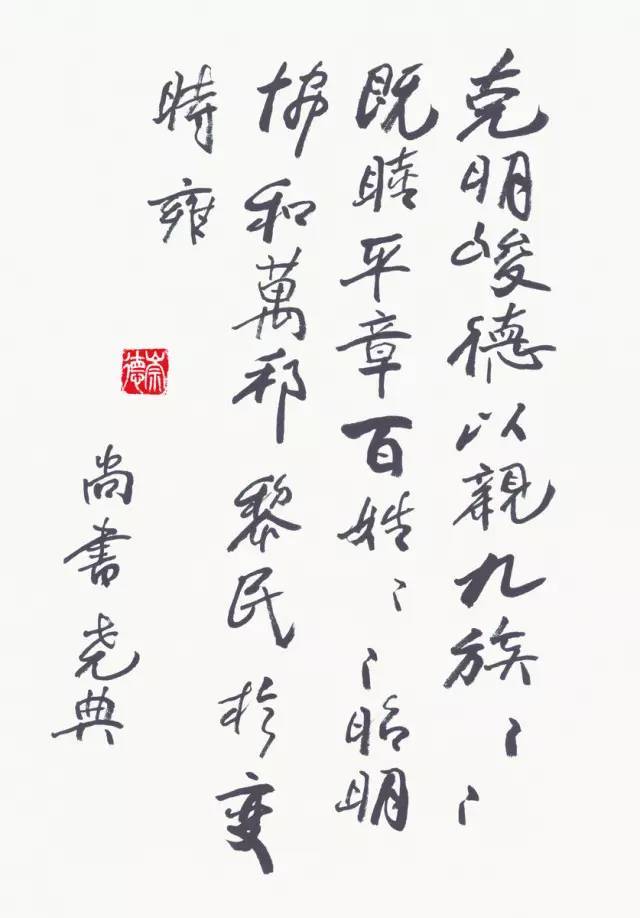 克明峻德以親九族〻〻
既睦平章百姓〻〻昭明
协和萬邦黎民於变
時雍
崇德
尚書尧典